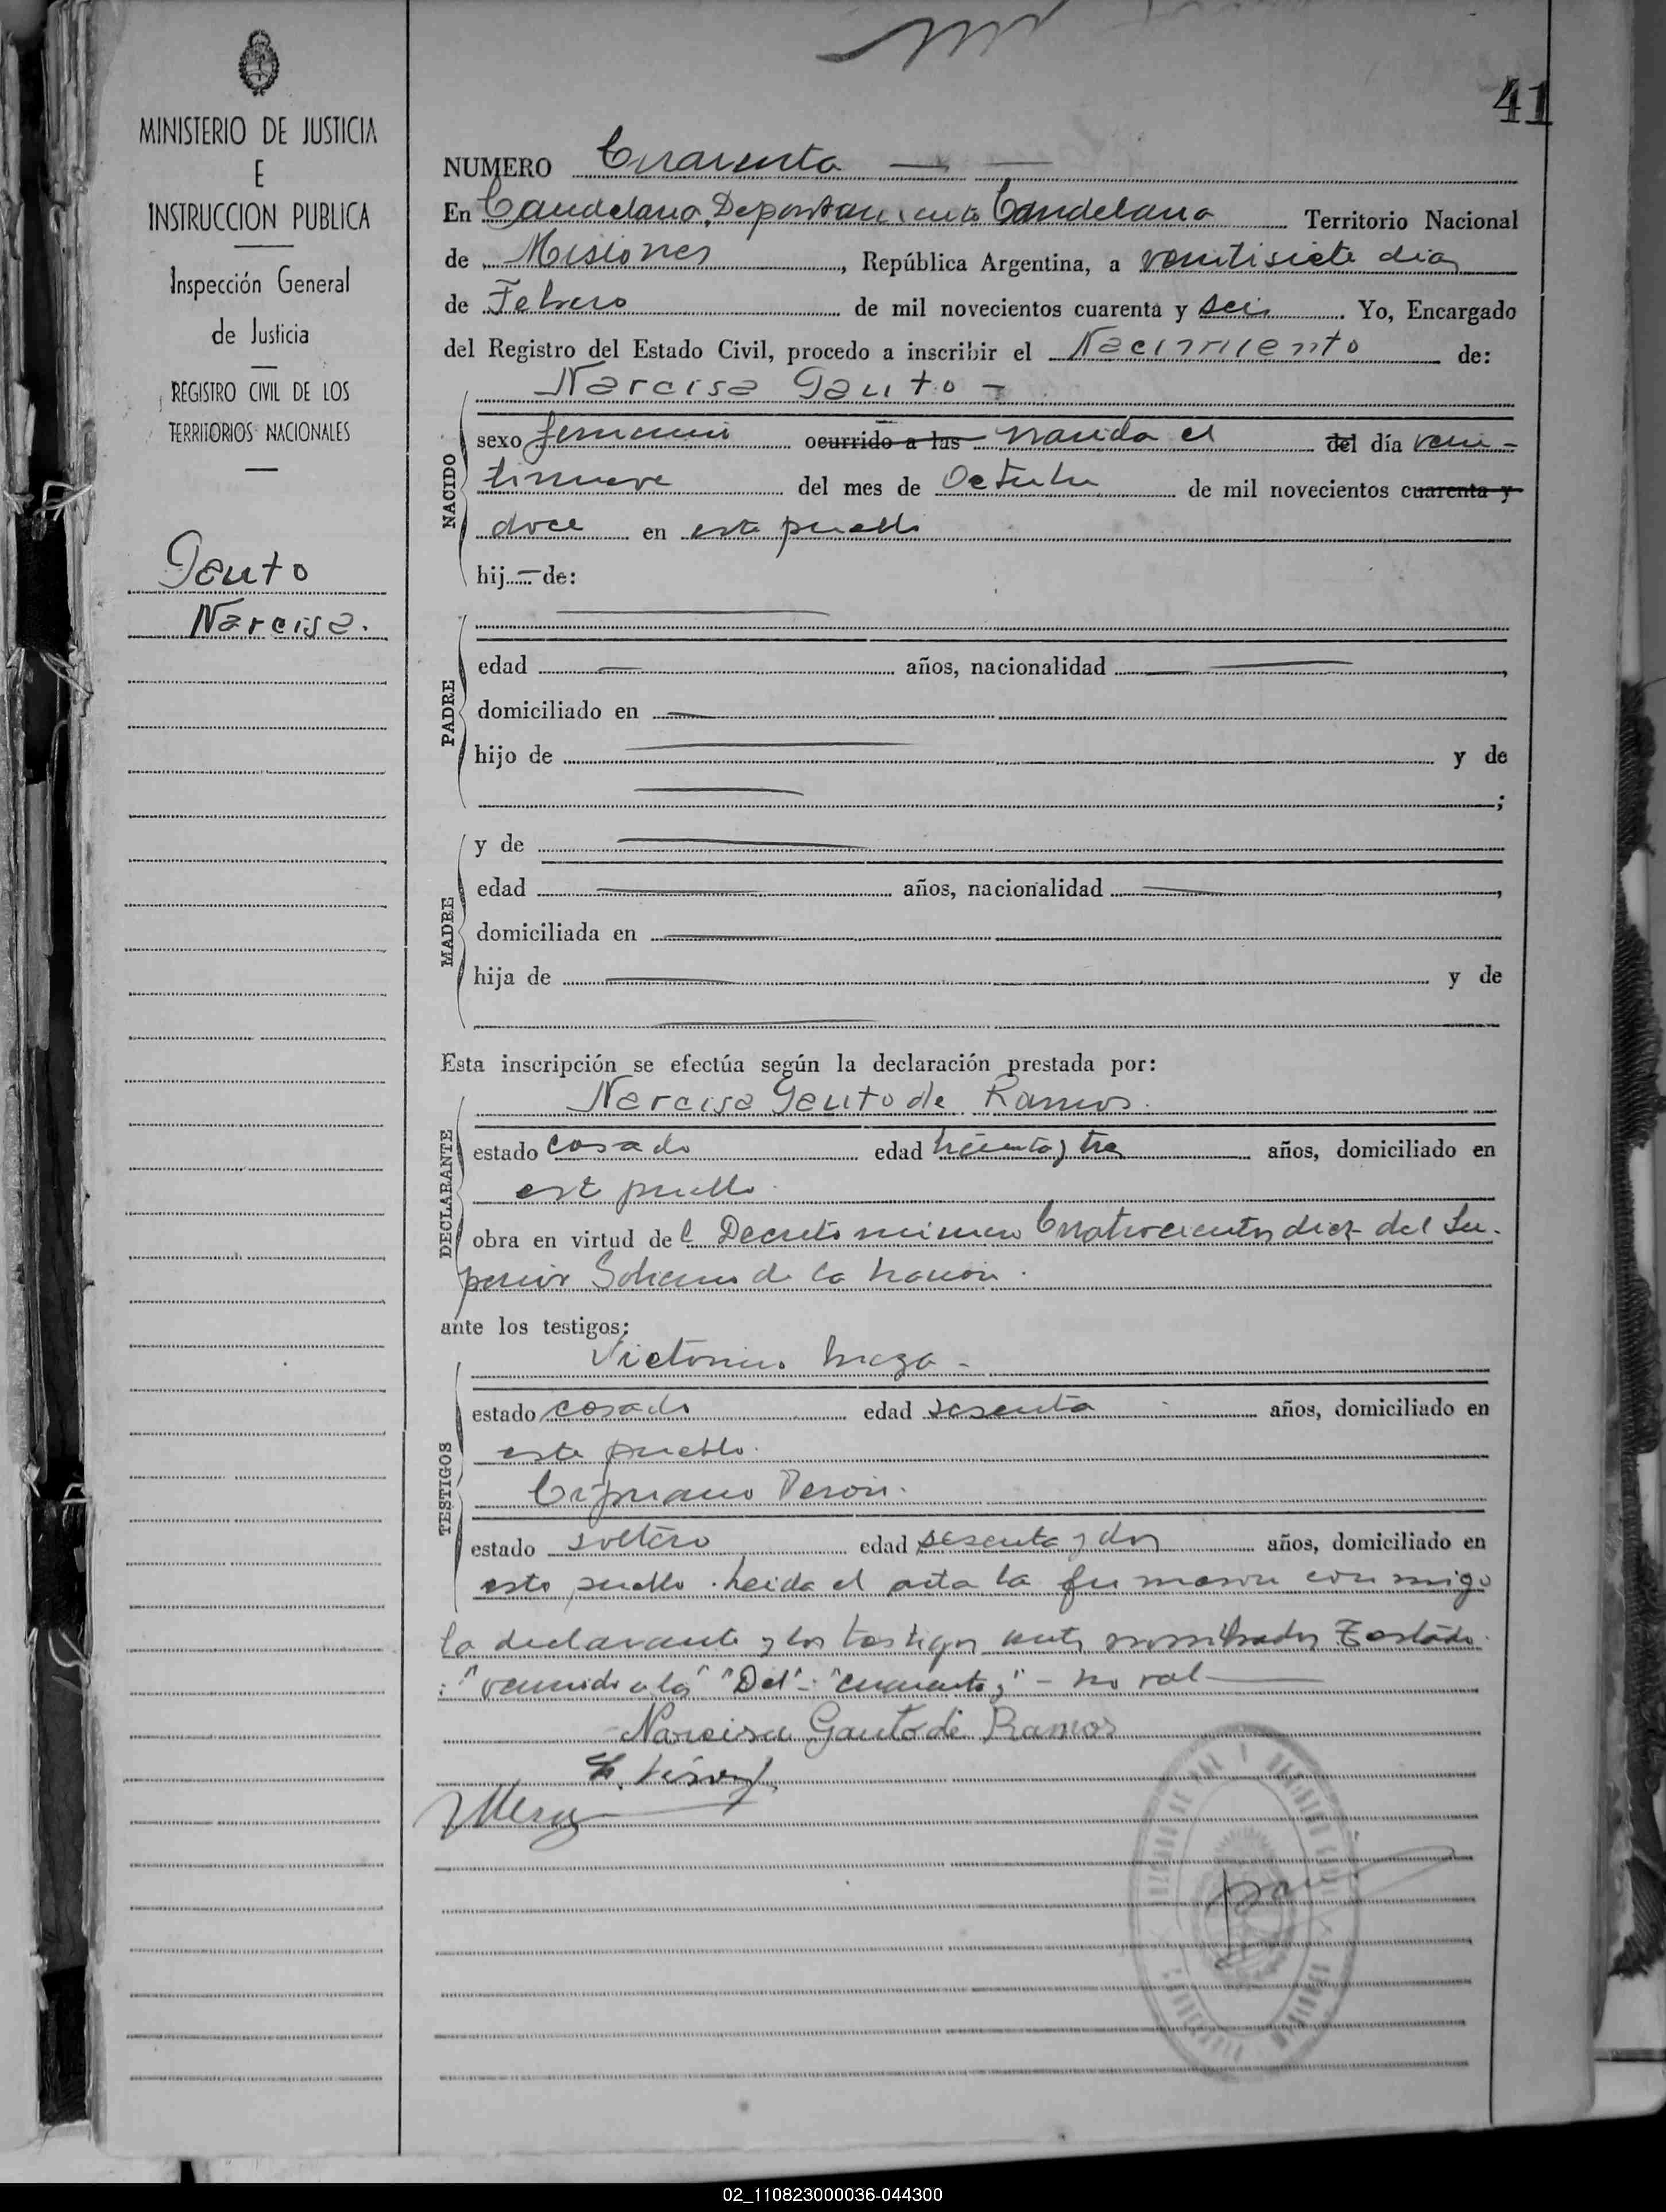 41
MINISTERIO DE JUSTICIA
E
INSTRUCCION PUBLICA
Inspección General
de Justicia
REGISTRO CIVIL DE LOS
TERRITORIOS NACIONALES
Gauto
Narcisa.
NUMERO Cuarenta
En Candelaria, Departamento Candelaria Territorio Nacional
de Misiones, República Argentina, a veintisiete dias
de Febrero de mil novecientos cuarenta y seis. Yo, Encargado
del Registro del Estado Civil, procedo a inscribir el Nacimiento de:
Narcisa Gauto
NACIDO
sexo femenino ocurrido a las nacida el del día vein-
tinueve del mes de Octubre de mil novecientos cuarenta y
doce en este pueblo
hij de:
PADRE
edad años, nacionalidad ,
domiciliado en
hijo de y de
;
MADRE
y de
edad años, nacionalidad ,
domiciliada en
hija de y de
Esta inscripción se efectúa según la declaración prestada por:
DECLARANTE
Narcisa Gauto de Ramos.
estado casado edad treinta y tres años, domiciliado en
este pueblo.
obra en virtud del Decreto número Cuatrocientos diez del Su-
perior Gobierno de la Nación.
ante los testigos:
TESTIGOS
Victorino Meza
estado casado edad sesenta años, domiciliado en
este pueblo.
Cipriano
estado soltero edad sesenta y dos años, domiciliado en
este pueblo. Leida el acta la firmaron conmigo
la declarante y los testigos antes nombrados Testado
: "ocurrido a las" "Del" - "cuarenta y" - no vale
Narcisa Gauto de Ramos
Meza
02_110823000036-044300